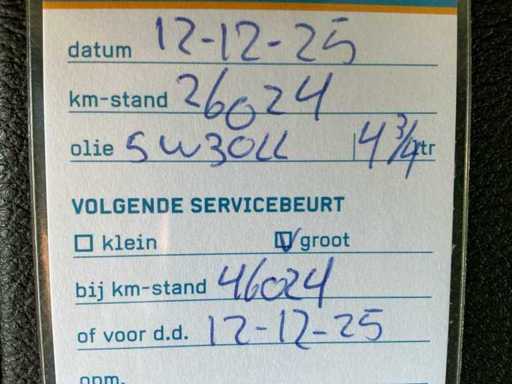 datum 12-12-25
km-stand 26024
olie 5W30LL 4 3/4 ltr
VOLGENDE SERVICEBEURT
klein groot
bij km-stand 46024
of voor d.d. 12-12-25
opm.